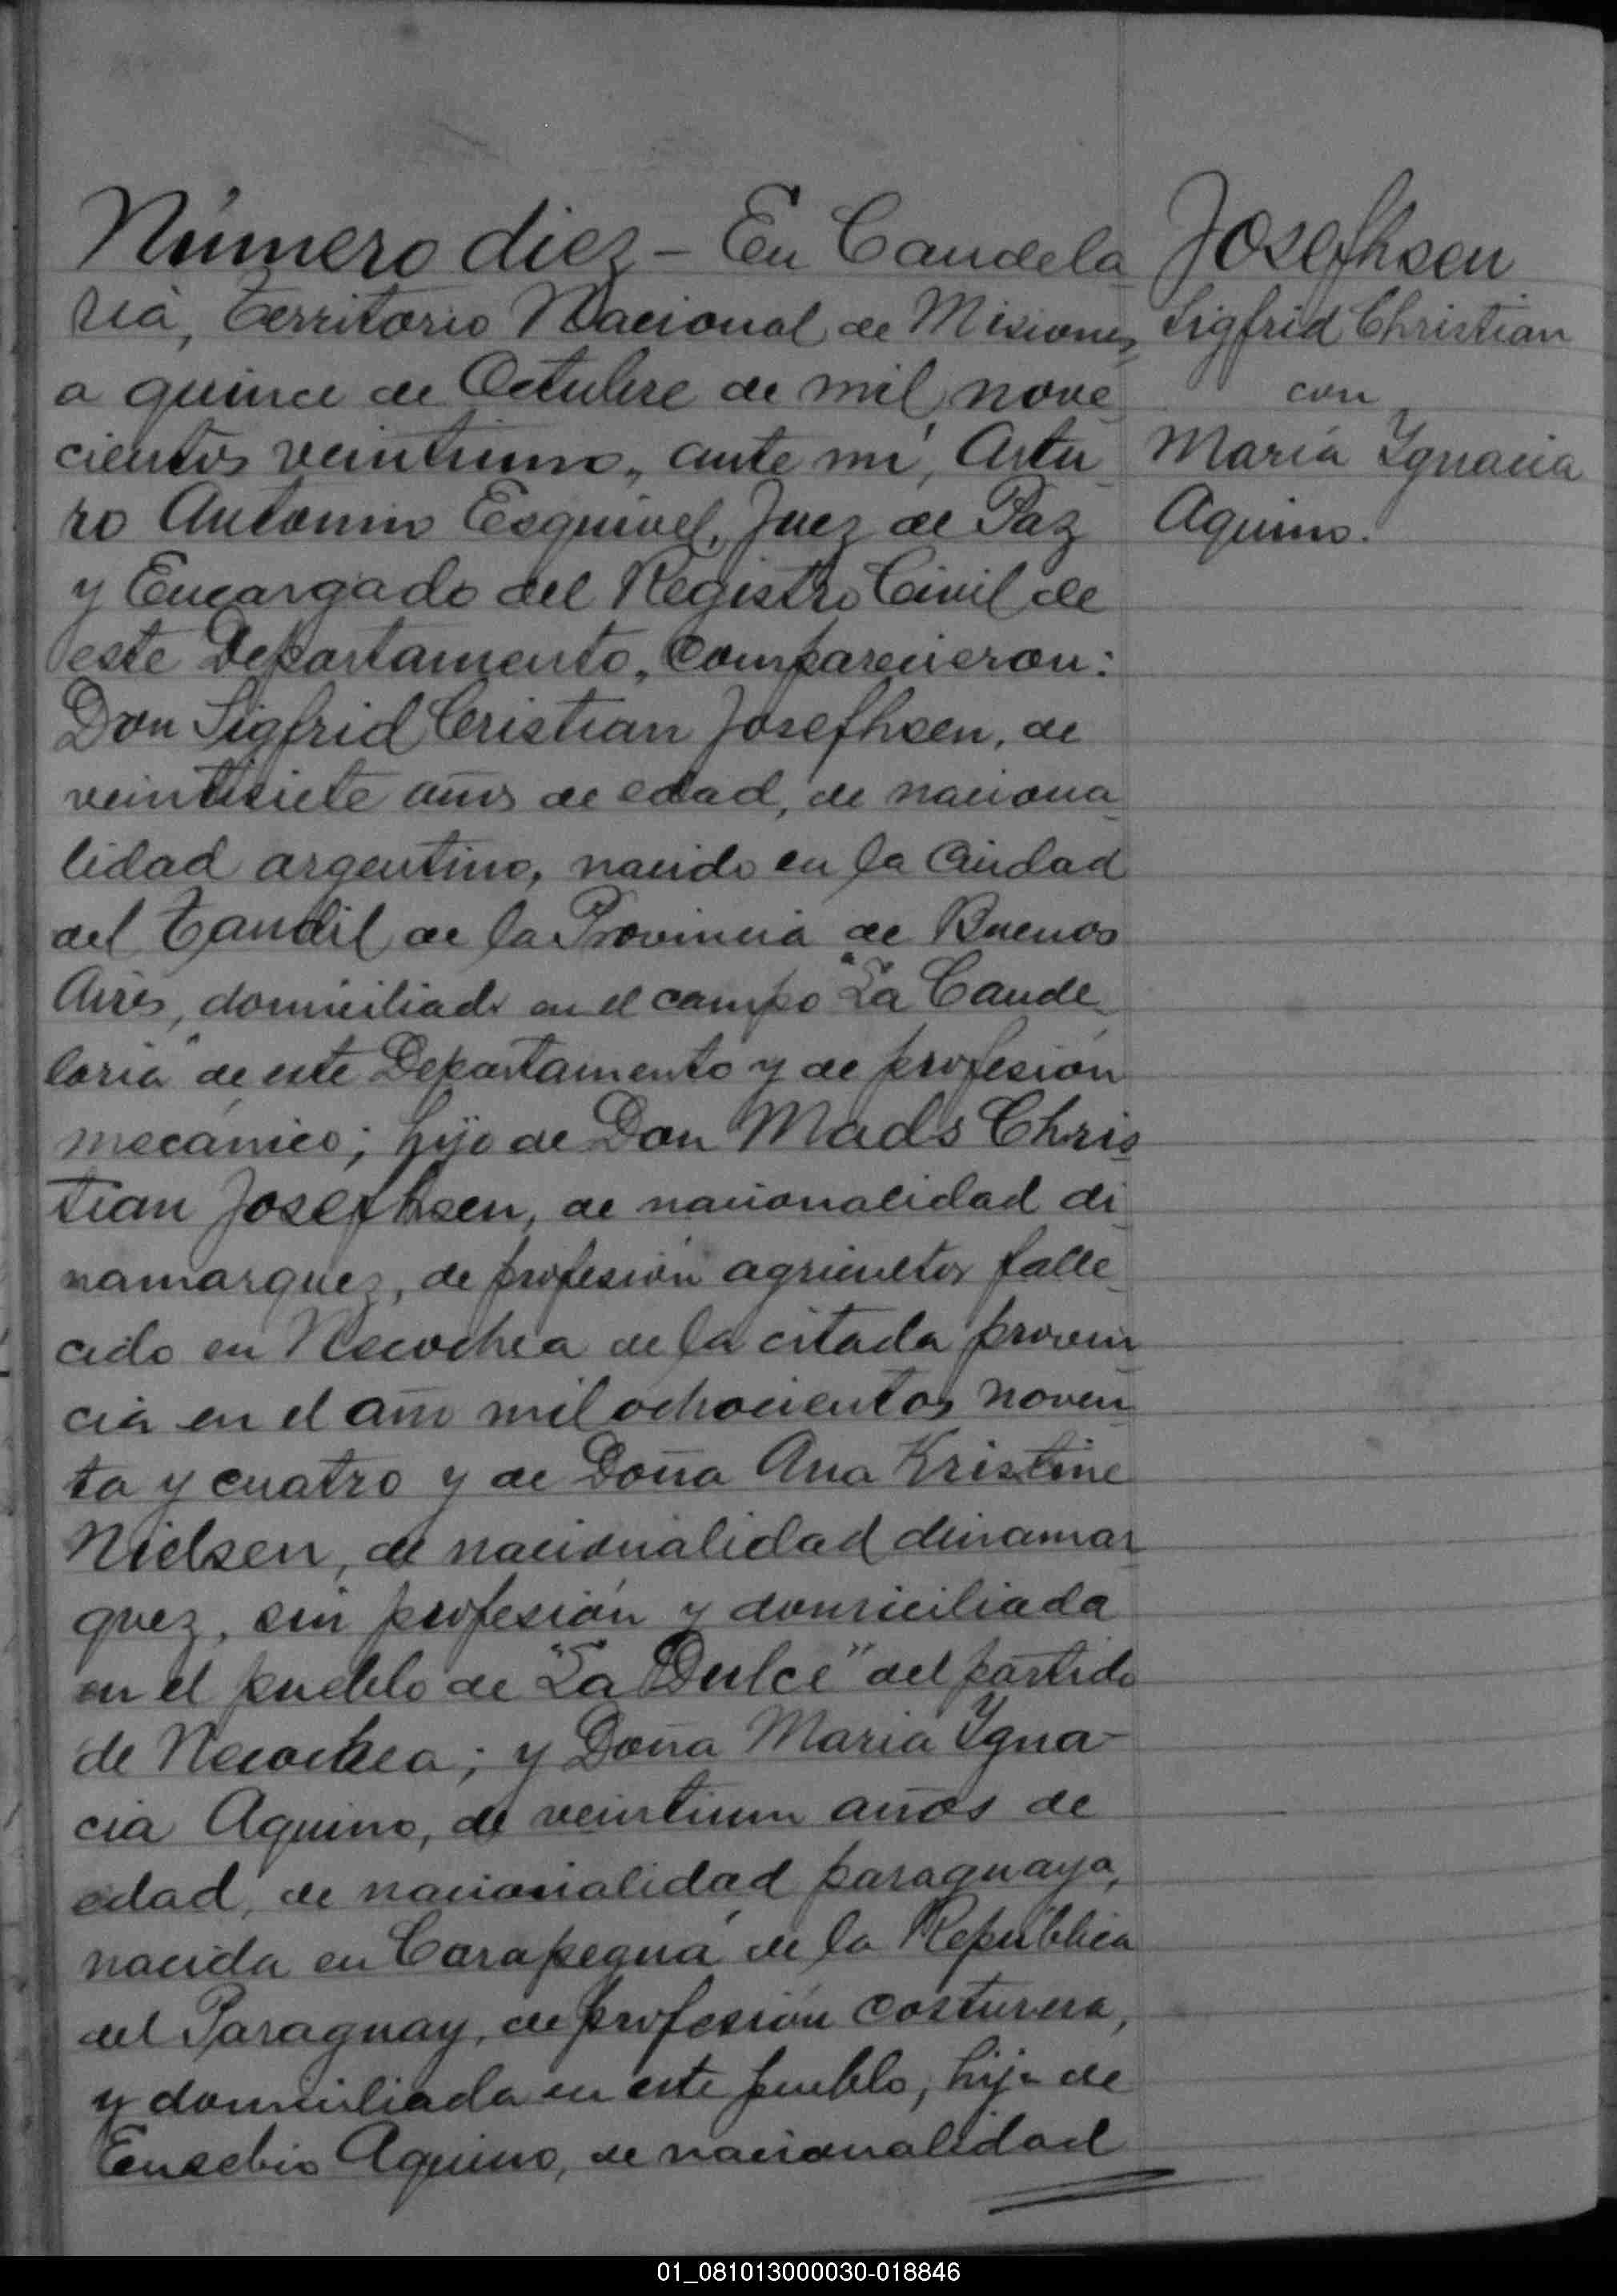 Número diez - En Candela
ria, Territorio Nacional de Misiones,
a quince de Octubre de mil nove
cientos veintiuno, ante mí, Artu
ro Antonio Esquivel, Juez de Paz
y Encargado del Registro Civil de
este Departamento, Comparecieron:
Don Sigfrid Cristian Josefhsen, de
veintisiete años de edad, de naciona
lidad argentino, nacido en la Ciudad
del Tandil de la Provincia de Buenos
Aires, domiciliado en el campo "La Cande
laria" de este Departamento y de profesión
mecánico; hijo de Don Mads Chris
tian Josefhsen, de nacionalidad di
namarquez, de profesión agricultor falle
cido en Necochea de la citada provin
cia en el año mil ochocientos noven
ta y cuatro y de Doña Ana Kristine
Nielsen, de nacionalidad dinamar
quez, sin profesión y domiciliada
en el pueblo de "La Dulce" del partido
de Necochea; y Doña María Ygna-
cia Aquino, de veintiun años de
edad, de nacionalidad paraguaya,
nacida en Carapeguá de la República
del Paraguay, de profesión costurera,
y domiciliada en este pueblo, hija de
Eusebio Aquino, de nacionalidad
Josefhsen
Sigfrid Christian
con
María Ygnacia
Aquino.
01_081013000030-018846